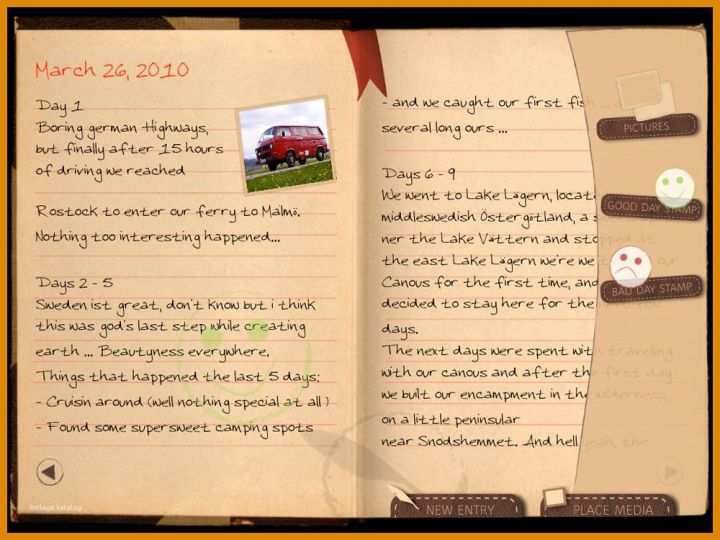 March 26, 2010
Day 1
Boring german Highways,
but finally after 15 hours
of driving we reached
Rostock to enter our ferry to Malmö.
Nothing too interesting happened...
Days 2 - 5
Sweden ist great, don't know but i think
this was god's last step while creating
earth ... Beautyness everywhere.
Things that happened the last 5 days:
- Cruisin around (well nothing special at all)
- Found some supersweet camping spots
- and we caught our first fish
several long ours ...
Days 6 - 9
We went to Lake Lägern,
middleswedish Östergötland, a
ner the Lake Vättern and stopped
the east Lake Lägern we're we our
Canous for the first time, and
decided to stay here for the
days.
The next days were spent with traveling
with our canous and after the first day
we built our encampment in the wilderness
on a little peninsular
near Snodshemmet. And hell yeah, the
PICTURES
GOOD DAY STAMP
BAD DAY STAMP
NEW ENTRY
PLACE MEDIA